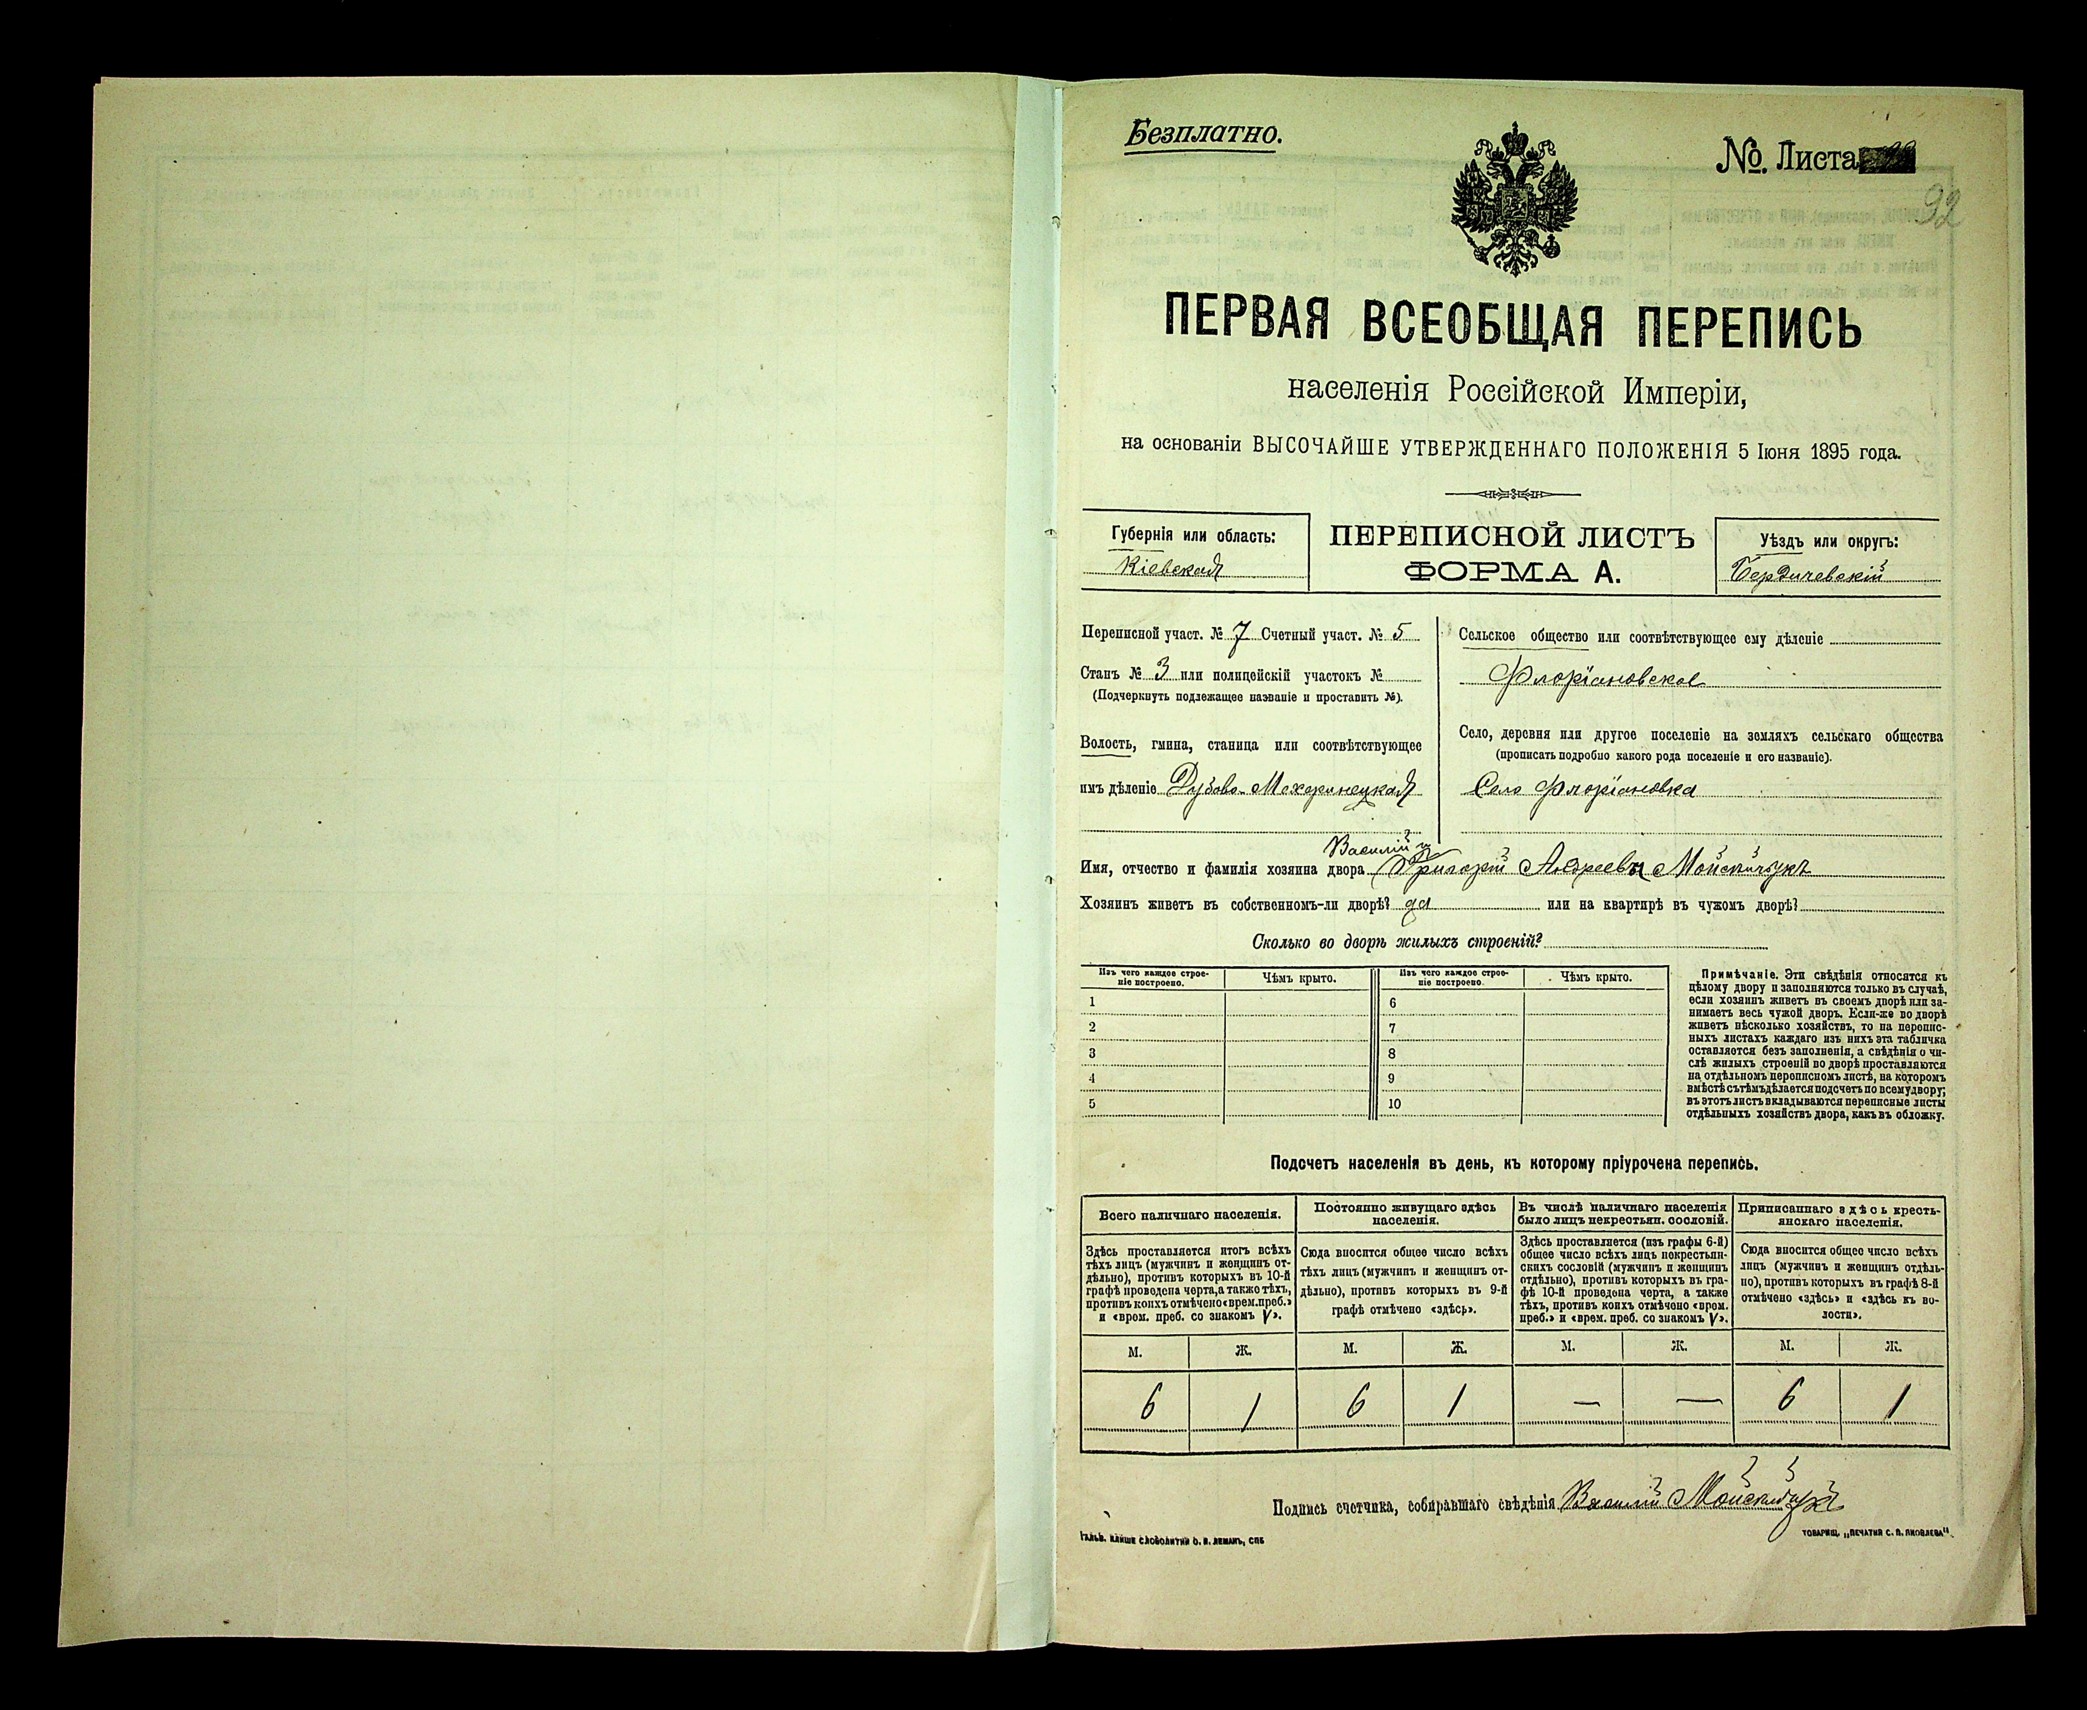 Безплатно.
№. Листа
92
ПЕРВАЯ ВСЕОБЩАЯ ПЕРЕПИСЬ
населенія Россійской Имперіи,
на основаніи ВЫСОЧАЙШЕ УТВЕРЖДЕННАГО ПОЛОЖЕНІЯ 5 Іюня 1895 года.
Губернія или область:
Кіевская
ПЕРЕПИСНОЙ ЛИСТЪ
ФОРМА А.
Уѣздъ или округъ:
Бердичевскій
Переписной участ. № 7 Счетный участ. № 5
Станъ № 3 или полицейскій участокъ №
(Подчеркнуть подлежащее названіе и проставить №).
Волость, гмина, станица или соотвѣтствующее
имъ дѣленіе Дубово-Махаринецкая
Сельское общество или соотвѣтствующее ему дѣленіе
Флоріановское
Село, деревня или другое поселеніе на земляхъ сельскаго общества
(прописать подробно какого рода поселеніе и его названіе).
Село Флоріановка
Василій и
Имя, отчество и фамилія хозяина двора Григорій Андреевы Мойсійчукъ
Хозяинъ живетъ въ собственномъ-ли дворѣ? да или на квартирѣ въ чужомъ дворѣ?
Сколько во дворѣ жилыхъ строеній?
Изъ чего каждое строе-
ніе построено.
Чѣмъ крыто.
Изъ чего каждое строе-
ніе построено.
Чѣмъ крыто.
1 6
2 7
3 8
4 9
5 10
Примѣчаніе. Эти свѣдѣнія относятся къ
цѣлому двору и заполняются только въ случаѣ,
если хозяинъ живетъ въ своемъ дворѣ или за-
нимаетъ весь чужой дворъ. Если-же во дворѣ
живетъ нѣсколько хозяйствъ, то на перепис-
ныхъ листахъ каждаго изъ нихъ эта табличка
оставляется безъ заполненія, а свѣдѣнія о чи-
слѣ жилыхъ строеній во дворѣ проставляются
на отдѣльномъ переписномъ листѣ, на которомъ
вмѣстѣ съ тѣмъ дѣлается подсчетъ по всему двору;
въ этотъ листъ вкладываются переписные листы
отдѣльныхъ хозяйствъ двора, какъ въ обложку.
Подсчетъ населенія въ день, къ которому пріурочена перепись.
Всего наличнаго населенія.
Здѣсь проставляется итогъ всѣхъ
тѣхъ лицъ (мужчинъ и женщинъ от-
дѣльно), противъ которыхъ въ 10-й
графѣ проведена черта, а также тѣхъ,
противъ коихъ отмѣчено «врем. преб.»
и «врем. преб. со знакомъ V».
Постоянно живущаго здѣсь
населенія.
Сюда вносится общее число всѣхъ
тѣхъ лицъ (мужчинъ и женщинъ от-
дѣльно), противъ которыхъ въ 9-й
графѣ отмѣчено «здѣсь».
Въ числѣ наличнаго населенія
было лицъ некрестьян. сословій.
Здѣсь проставляется (изъ графы 6-й)
общее число всѣхъ лицъ некрестьян-
скихъ сословій (мужчинъ и женщинъ
отдѣльно), противъ которыхъ въ гра-
фѣ 10-й проведена черта, а также
тѣхъ, противъ коихъ отмѣчено «врем.
преб.» и «врем. преб. со знакомъ V».
Приписаннаго здѣсь кресть-
янскаго населенія.
Сюда вносится общее число всѣхъ
лицъ (мужчинъ и женщинъ отдѣль-
но), противъ которыхъ въ графѣ 8-й
отмѣчено «здѣсь» и «здѣсь къ во-
лости».
М. Ж. М. Ж. М. Ж. М. Ж.
6 1 6 1 — — 6 1
Подпись счетчика, собиравшаго свѣдѣнія Василій Мойсійчукъ
ГАЛЬВ. КЛИШЕ СЛОВОЛИТНИ О. И. ЛЕМАНЪ, СПБ
ТОВАРИЩ. „ПЕЧАТНЯ С. П. ЯКОВЛЕВА"